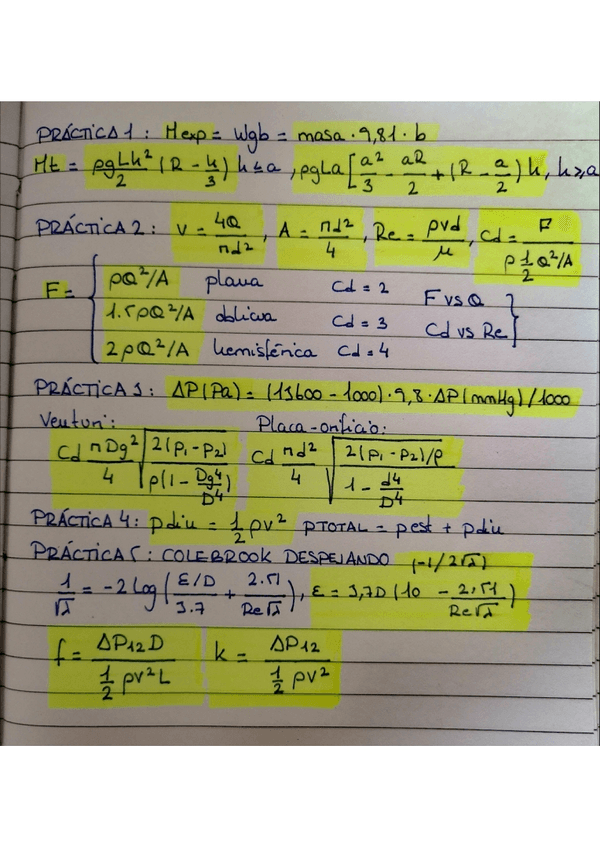 PRÁCTICA 1 : Mexp = Wgb = masa · 9,81 · b
Mt = ρgLh²/2 (R - h/3) h≤a , ρgLa[a²/3 - aR/2 + (R - a/2)h, h≥a
PRÁCTICA 2 : V = 4Q/πd² , A = πd²/4 , Re = ρvd/μ , Cd = F/(ρ 1/2 Q²/A)
F = { ρQ²/A plana Cd = 2 F vs Q }
1.5ρQ²/A oblicua Cd = 3 Cd vs Re
2ρQ²/A hemisférica Cd = 4
PRÁCTICA 3 : ΔP(Pa) = (13600 - 1000) · 9,8 · ΔP(mmHg)/1000
Venturi : Placa-orificio :
Cd πDg²/4 √(2(p₁-p₂)/ρ(1 - Dg⁴/D⁴)) Cd πd²/4 √(2(p₁-p₂)/ρ / 1 - d⁴/D⁴)
PRÁCTICA 4 : pdin = 1/2 ρv² pTOTAL = pest + pdin
PRÁCTICA 5 : COLEBROOK DESPEJANDO (-1/2√λ)
1/√λ = -2 log(ε/D/3.7 + 2.51/Re√λ) , ε = 3,7D(10 - 2,51/Re√λ)
f = ΔP₁₂D/(1/2 ρv²L) k = ΔP₁₂/(1/2 ρv²)